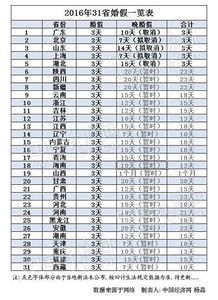 2016年31省婚假一览表
省份 婚假 晚婚假 合计
1 广东 3天 10天（取消） 3天
2 北京 3天 7天（拟取消） 3天
3 山东 3天 14天（取消） 3天
4 上海 3天 7天（拟取消） 3天
5 湖北 3天 15天（取消） 3天
6 陕西 3天 20天（暂时） 23天
7 四川 3天 20天（暂时） 23天
8 新疆 3天 20天（暂时） 23天
9 云南 3天 15天（暂时） 18天
10 浙江 3天 12天（暂时） 15天
11 吉林 3天 12天（暂时） 15天
12 江苏 3天 10天（暂时） 13天
13 江西 3天 15天（暂时） 18天
14 辽宁 3天 7天（暂时） 10天
15 内蒙古 3天 15天（暂时） 18天
16 宁夏 3天 15天（暂时） 18天
17 青海 3天 15天（暂时） 18天
18 海南 3天 10天（暂时） 13天
19 山西 3天 1个月（暂时）
20 甘肃 3天 30天（暂时）
21 广西 3天 12天（暂时） 15天
22 贵州 3天 10天（暂时） 13天
23 河北 3天 15天（暂时） 18天
24 河南 3天
25 黑龙江 3天
26 安徽 3天 20天（暂时） 23天
27 湖南 3天 12天（暂时） 15天
28 天津 3天 7天（暂时） 10天
29 重庆 3天 10天（暂时） 13天
30 福建 3天
31 西藏 3天
数据来源于网络 制表人：中国经济网 杨淼